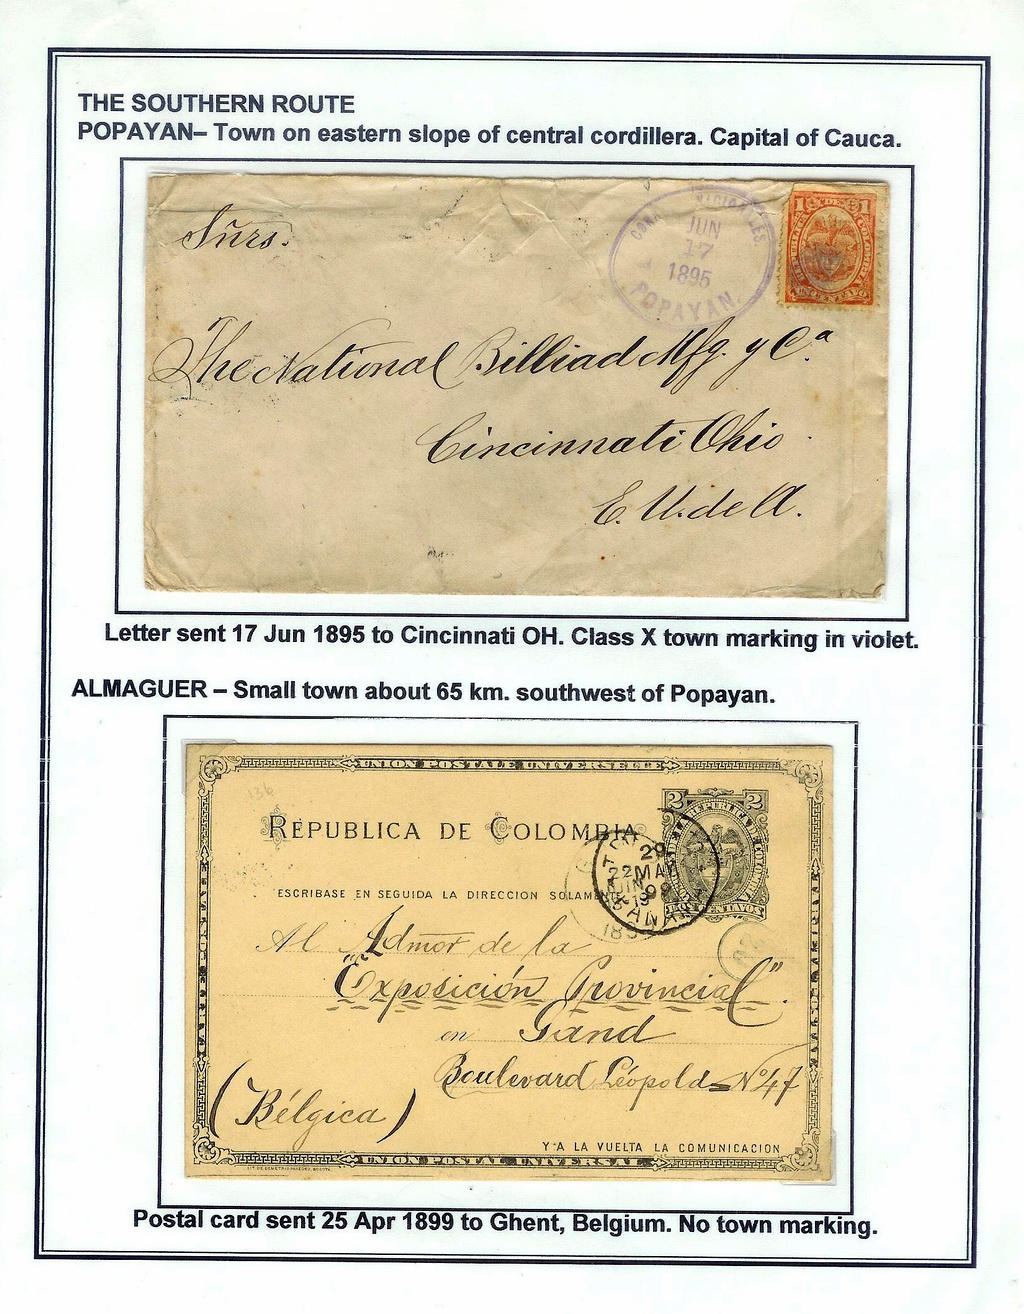 THE SOUTHERN ROUTE
POPAYAN– Town on eastern slope of central cordillera. Capital of Cauca.
Sñrs.
NACIONALES.
JUN
17
1895
POPAYAN.
1 1
The National Billiad Mfg. y Cª
Cincinnati Ohio
E. U. de A.
Letter sent 17 Jun 1895 to Cincinnati OH. Class X town marking in violet.
ALMAGUER – Small town about 65 km. southwest of Popayan.
UNION POSTALE UNIVERSELLE
136
2 2
REPUBLICA DE COLOMBIA
29
22MAY
JUN 99
ESCRIBASE EN SEGUIDA LA DIRECCION
CENTAVOS
Al Admor de la
"Exposición Provincial".
en Gand
Boulevard Léopold Nº 47
(Bélgica)
Y A LA VUELTA LA COMUNICACION
UNION POSTAL UNIVERSAL
Postal card sent 25 Apr 1899 to Ghent, Belgium. No town marking.